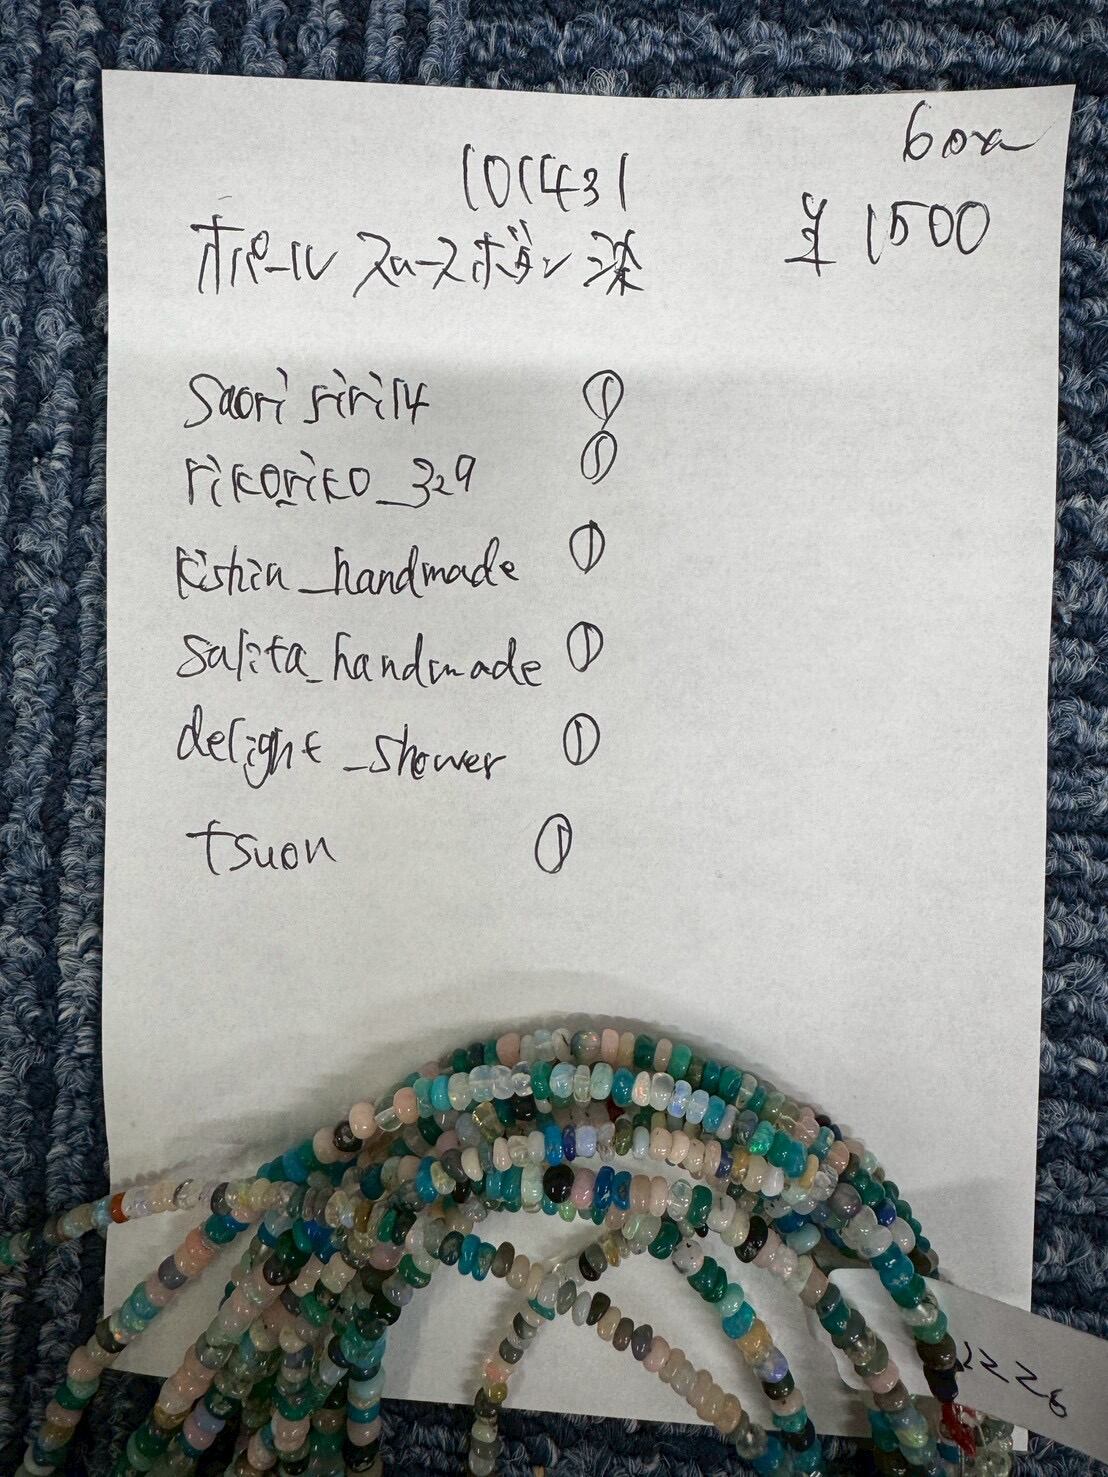 101431
60xa
¥ 1500
オパール スムースボタン 染
Saoriririri14
rikoriko_329
kishin_handmade
salita_handmade
delight_shower
tsuon
①
①
①
①
①
①